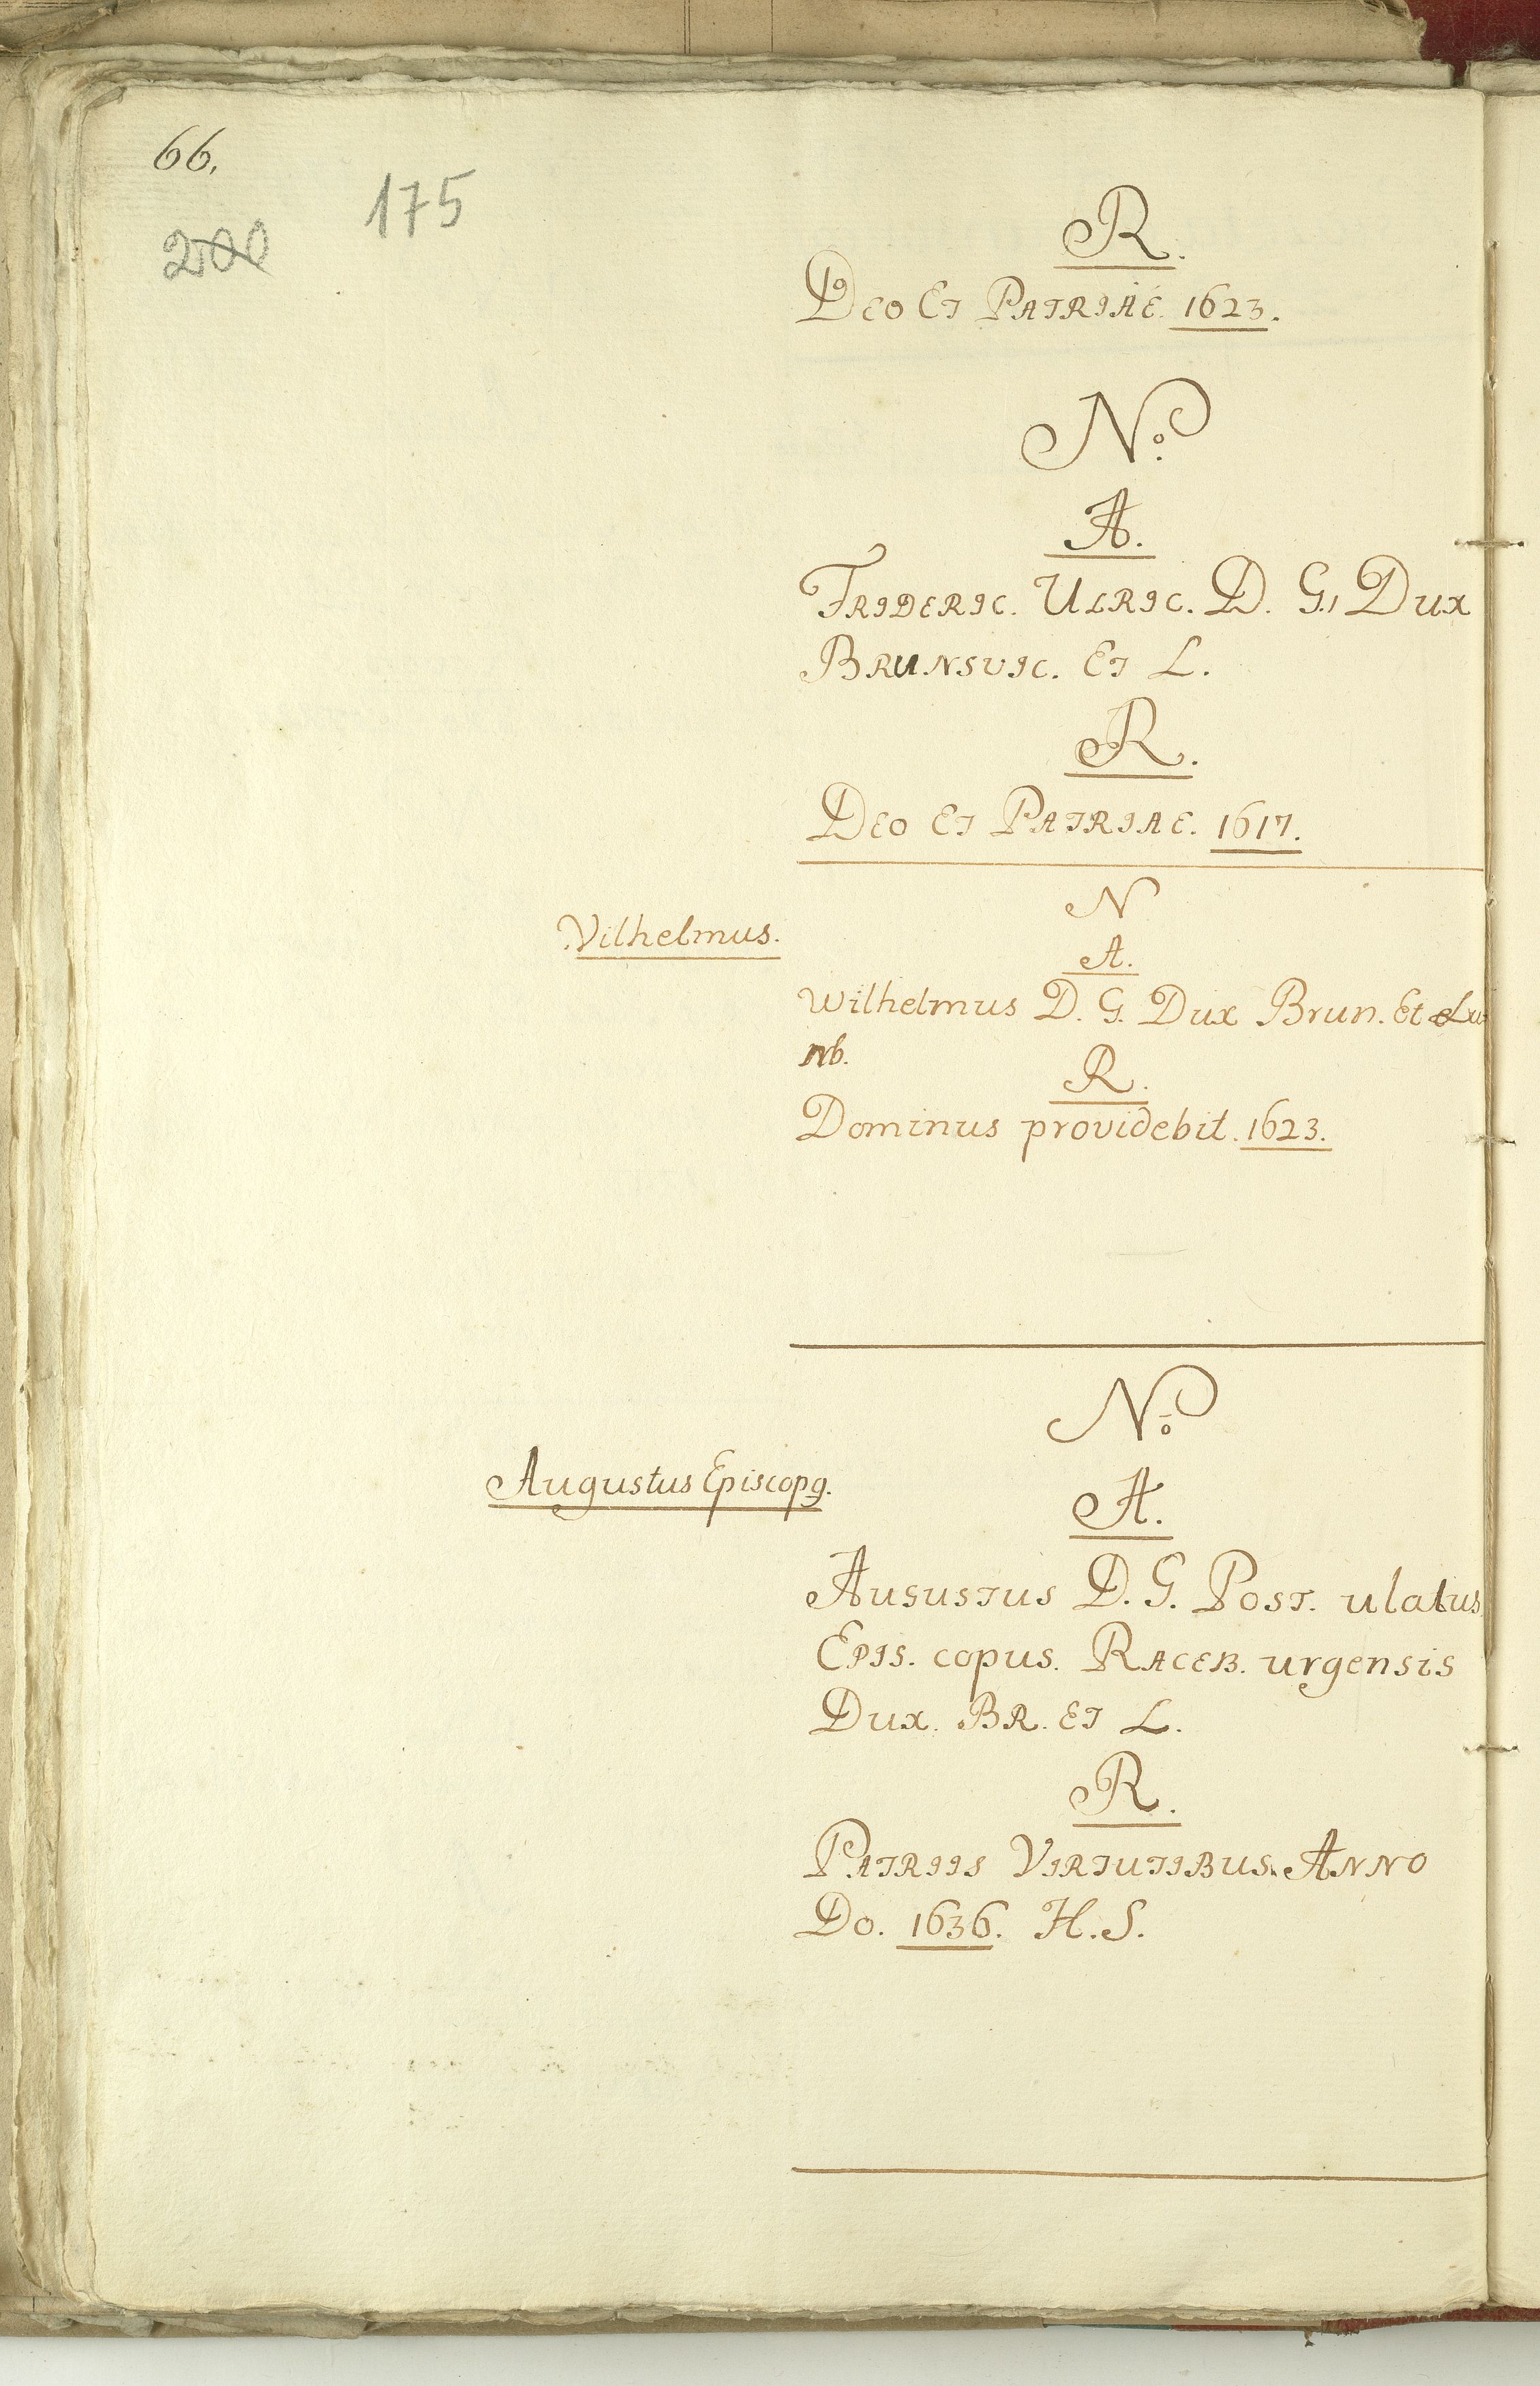 66.
175
200
R.
DEO ET PATRIAE. 1623.
No.
A.
FRIDERIC. ULRIC. D. G., DUX
BRUNSVIC. ET L.
R.
DEO ET PATRIAE. 1617.
N
Vilhelmus.
A.
Wilhelmus D. G. Dux Brun. Et Lu
nb.
R.
Dominus providebit. 1623.
No.
Augustus Episcopg.
A.
AUGUSTUS D. G. POST. ulatus
EPIS. copus. RACEB. urgensis
DUX. BR. ET L.
R.
PATRIIS VIRTUTIBUS. ANNO
DO. 1636. H. S.